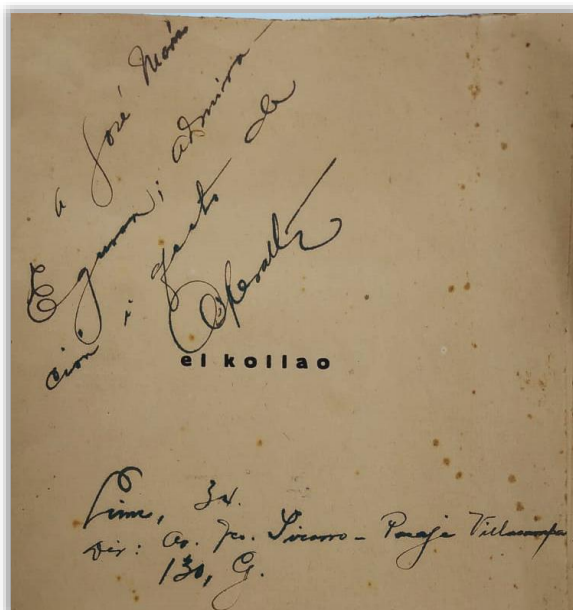 a José María
Eguren, admira-
ción i afecto de
el kollao
Lima, 34.
Dir: Av. Fco. Pizarro - Pasaje Villacampa
130, G.